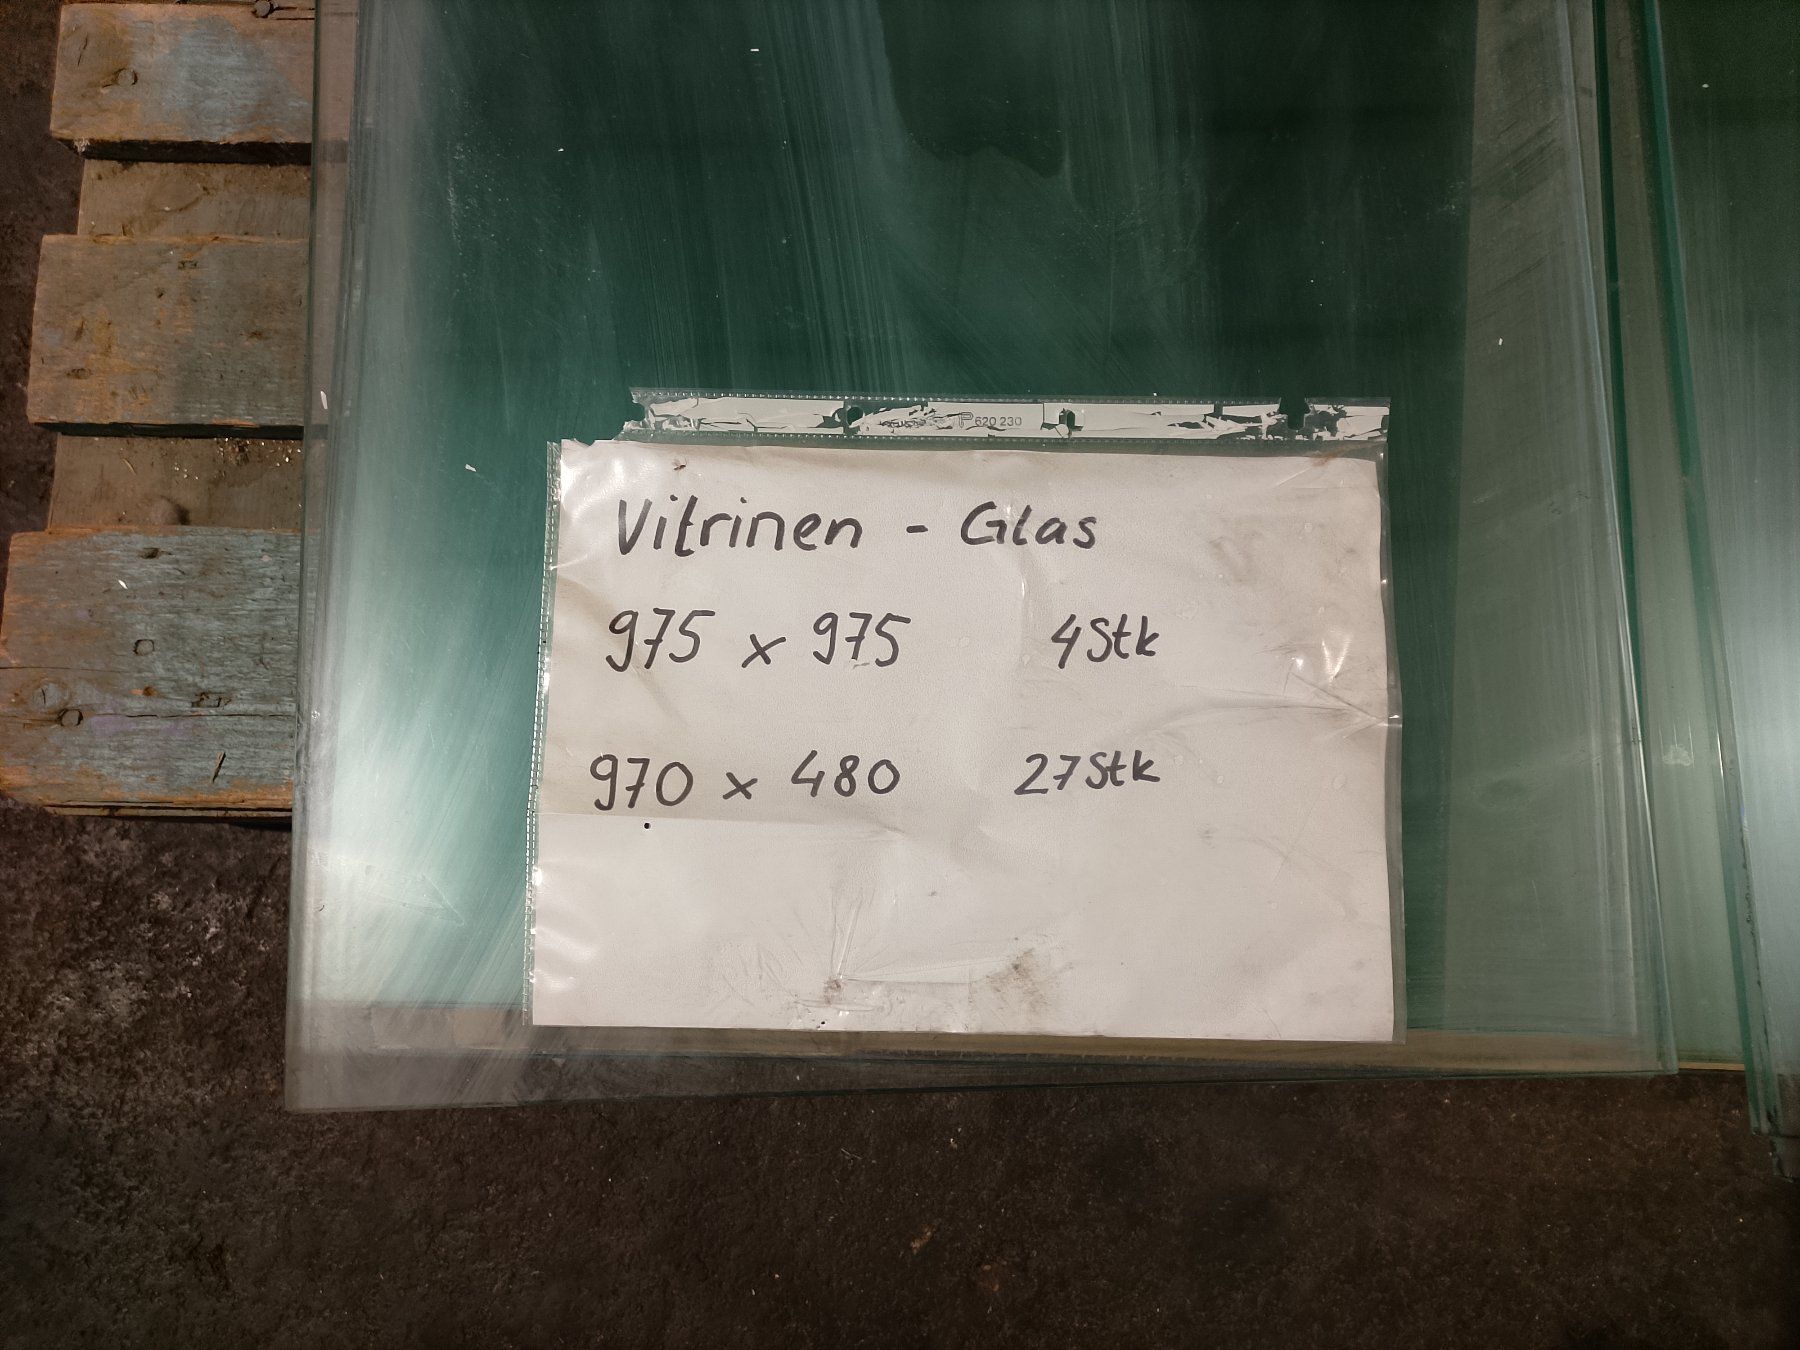 620 230
Vitrinen - Glas
975 x 975 4Stk
970 x 480 27Stk